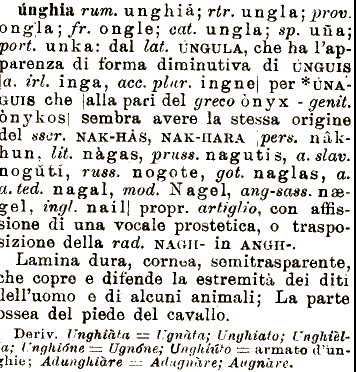 únghia rum. unghiă; rtr. ungla; prov.
ongla; fr. ongle; cat. ungla; sp. uña;
port. unka: dal lat. ÙNGULA, che ha l'ap-
parenza di forma diminutiva di ÙNGUIS
[a. irl. inga, acc. plur. ingne] per *ÙNA-
GUIS che [alla pari del greco ònyx - genit.
ònykos] sembra avere la stessa origine
del sscr. NAK-HÀS, NAK-HARA [pers. nâk-
hun, lit. nàgas, pruss. nagutis, a. slav.
nogŭti, russ. nogote, got. naglas, a.
a. ted. nagal, mod. Nagel, ang-sass. næ-
gel, ingl. nail] propr. artiglio, con affis-
sione di una vocale prostetica, o traspo-
sizione della rad. NAGH- in ANGH-.
Lamina dura, cornea, semitrasparente,
che copre e difende la estremità dei diti
dell'uomo e di alcuni animali; La parte
ossea del piede del cavallo.
Deriv. Unghiàta = Ugnàta; Unghiato; Unghièl-
la; Unghióne = Ugnóne; Unghiùto = armato d'un-
ghie; Adunghiàre = Adugnàre; Augnàre.